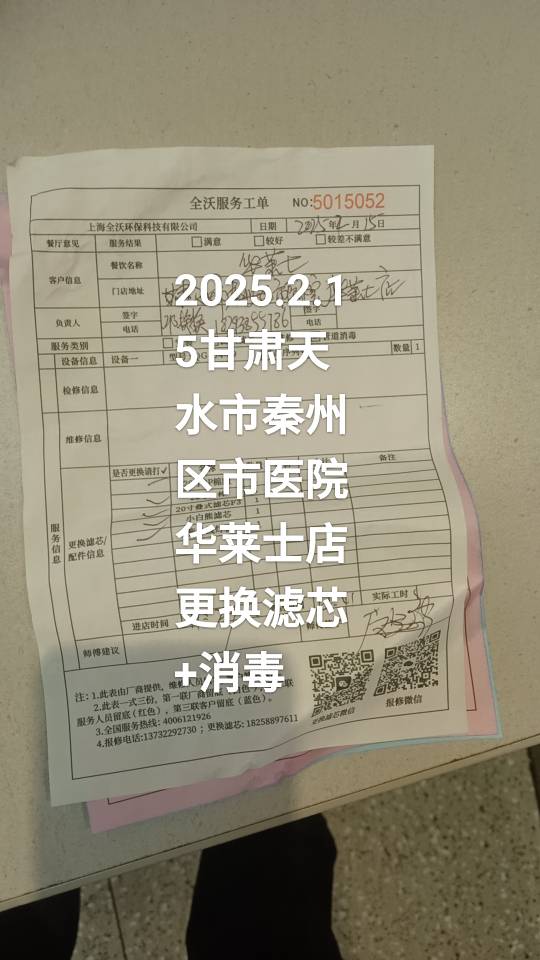 全沃服务工单 NO:5015052
上海全沃环保科技有限公司 日期 2025年2月15日
餐厅意见 服务结果 □满意 □较好 □较差不满意
客户信息 餐饮名称 华莱士
门店地址
负责人 签字 签字
电话 电话
服务类别
设备信息 设备一 数量 1
检修信息
维修信息
服务信息
是否更换请打✓ 备注
20寸叠式滤芯P3 1
小白熊滤芯 1
更换滤芯/
配件信息
进店时间 实际工时
师傅建议
2025.2.1
5甘肃天
水市秦州
区市医院
华莱士店
更换滤芯
+消毒
注：1.此表由厂商提供，维修
2.此表一式三份，第一联厂商留底
服务人员留底（红色），第三联客户留底（蓝色）。
3.全国服务热线: 4006121926
4.报修电话:13732292730 ；更换滤芯: 18258897611
更换滤芯微信
报修微信